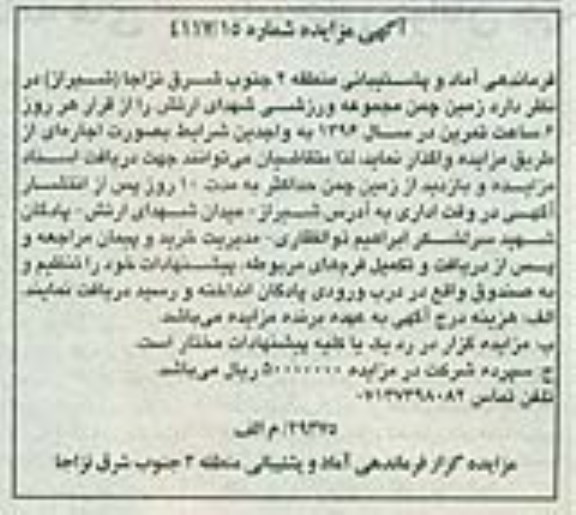 آگهی مزایده شماره ۴۱۱۷/۱۵
فرماندهی آماد و پشتیبانی منطقه ۲ جنوب شرق نزاجا (شیراز) در
نظر دارد زمین چمن مجموعه ورزشی شهدای ارتش را از قرار هر روز
۶ ساعت تمرین در سال ۱۳۹۶ به واجدین شرایط بصورت اجاره‌ای از
طریق مزایده واگذار نماید، لذا متقاضیان می‌توانند جهت دریافت اسناد
مزایده و بازدید از زمین چمن حداکثر به مدت ۱۰ روز پس از انتشار
آگهی در وقت اداری به آدرس شیراز - میدان شهدای ارتش - پادگان
شهید سرلشکر ابراهیم ذوالفقاری - مدیریت خرید و پیمان مراجعه و
پس از دریافت و تکمیل فرم‌های مربوطه، پیشنهادات خود را تنظیم و
به صندوق واقع در درب ورودی پادگان انداخته و رسید دریافت نمایند.
الف: هزینه درج آگهی به عهده برنده مزایده می‌باشد.
ب: مزایده گزار در رد یک یا کلیه پیشنهادات مختار است.
ج: سپرده شرکت در مزایده ۵۰۰۰۰۰۰۰ ریال می‌باشد.
تلفن تماس ۰۷۱۳۷۳۹۸۰۸۲
۲۹۳۷۵/م الف
مزایده گزار فرماندهی آماد و پشتیبانی منطقه ۲ جنوب شرق نزاجا